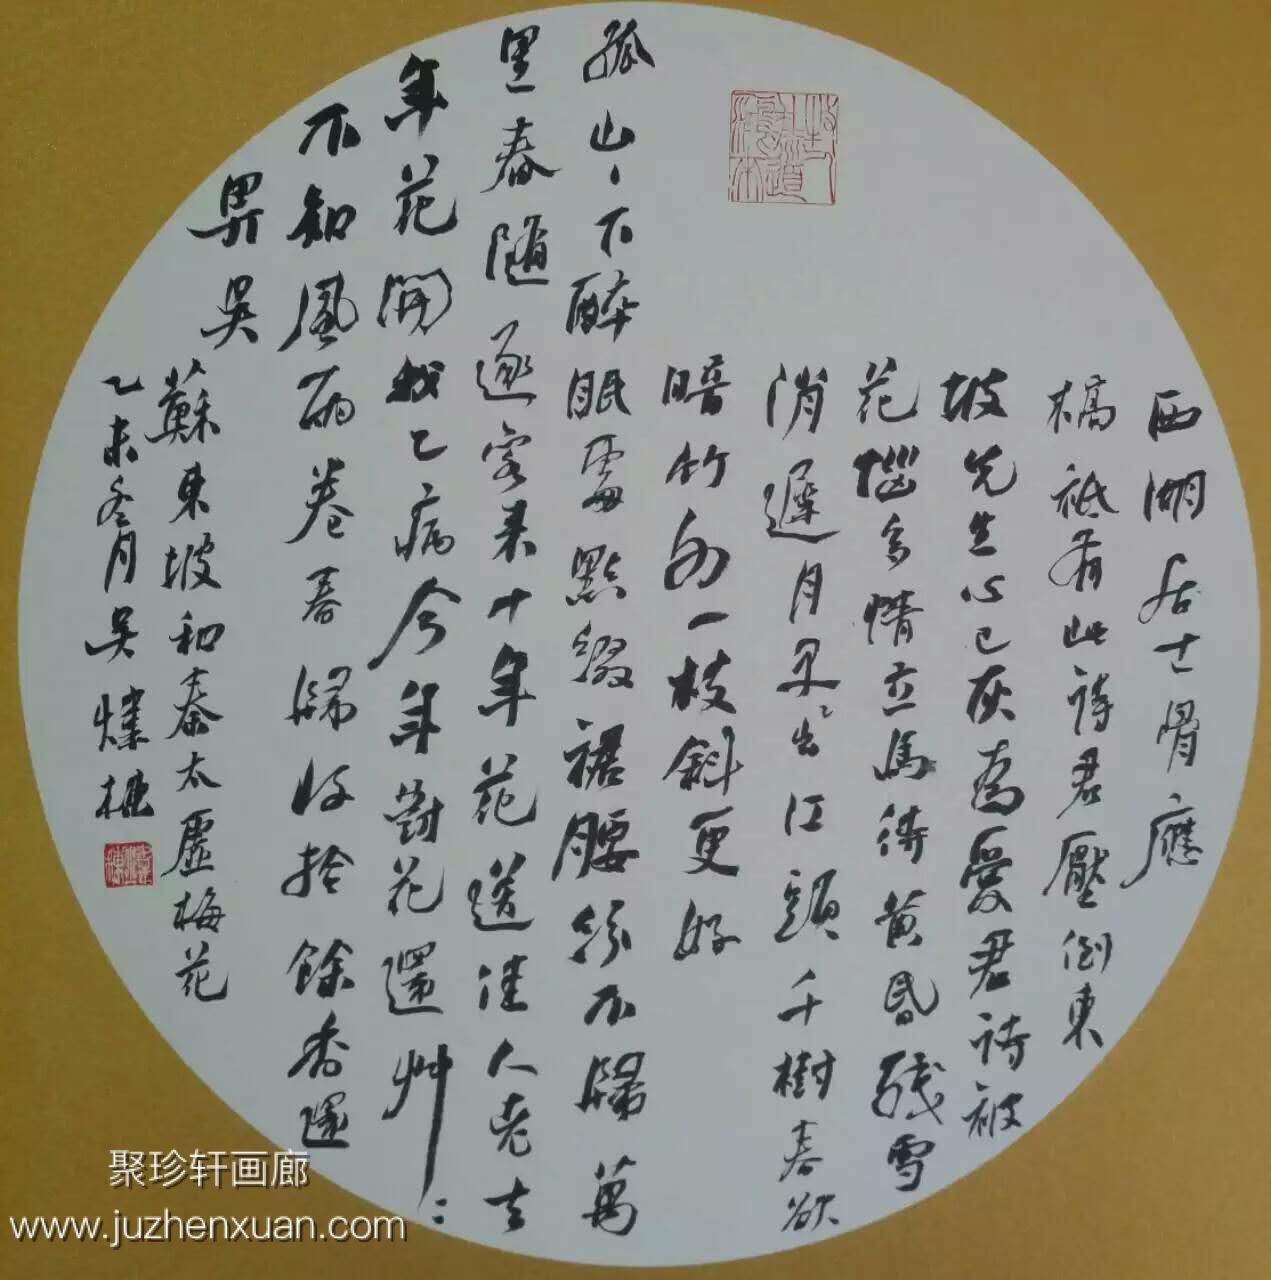 西湖居士骨應
槁祗有此詩君壓倒東
坡先生心已灰為愛君詩被
花惱多情立馬待黃昏殘雪
消遲月早出江頭千樹春欲
暗竹外一枝斜更好
孤山々下醉眠處點綴裙腰紛不歸萬
里春隨逐客來十年花送佳人老去
年花開我已病今年對花還艸々
不知風雨卷春歸收拾餘香還
畀吳
蘇東坡和秦太虛梅花
乙未冬月吳
聚珍轩画廊
www.juzhenxuan.com